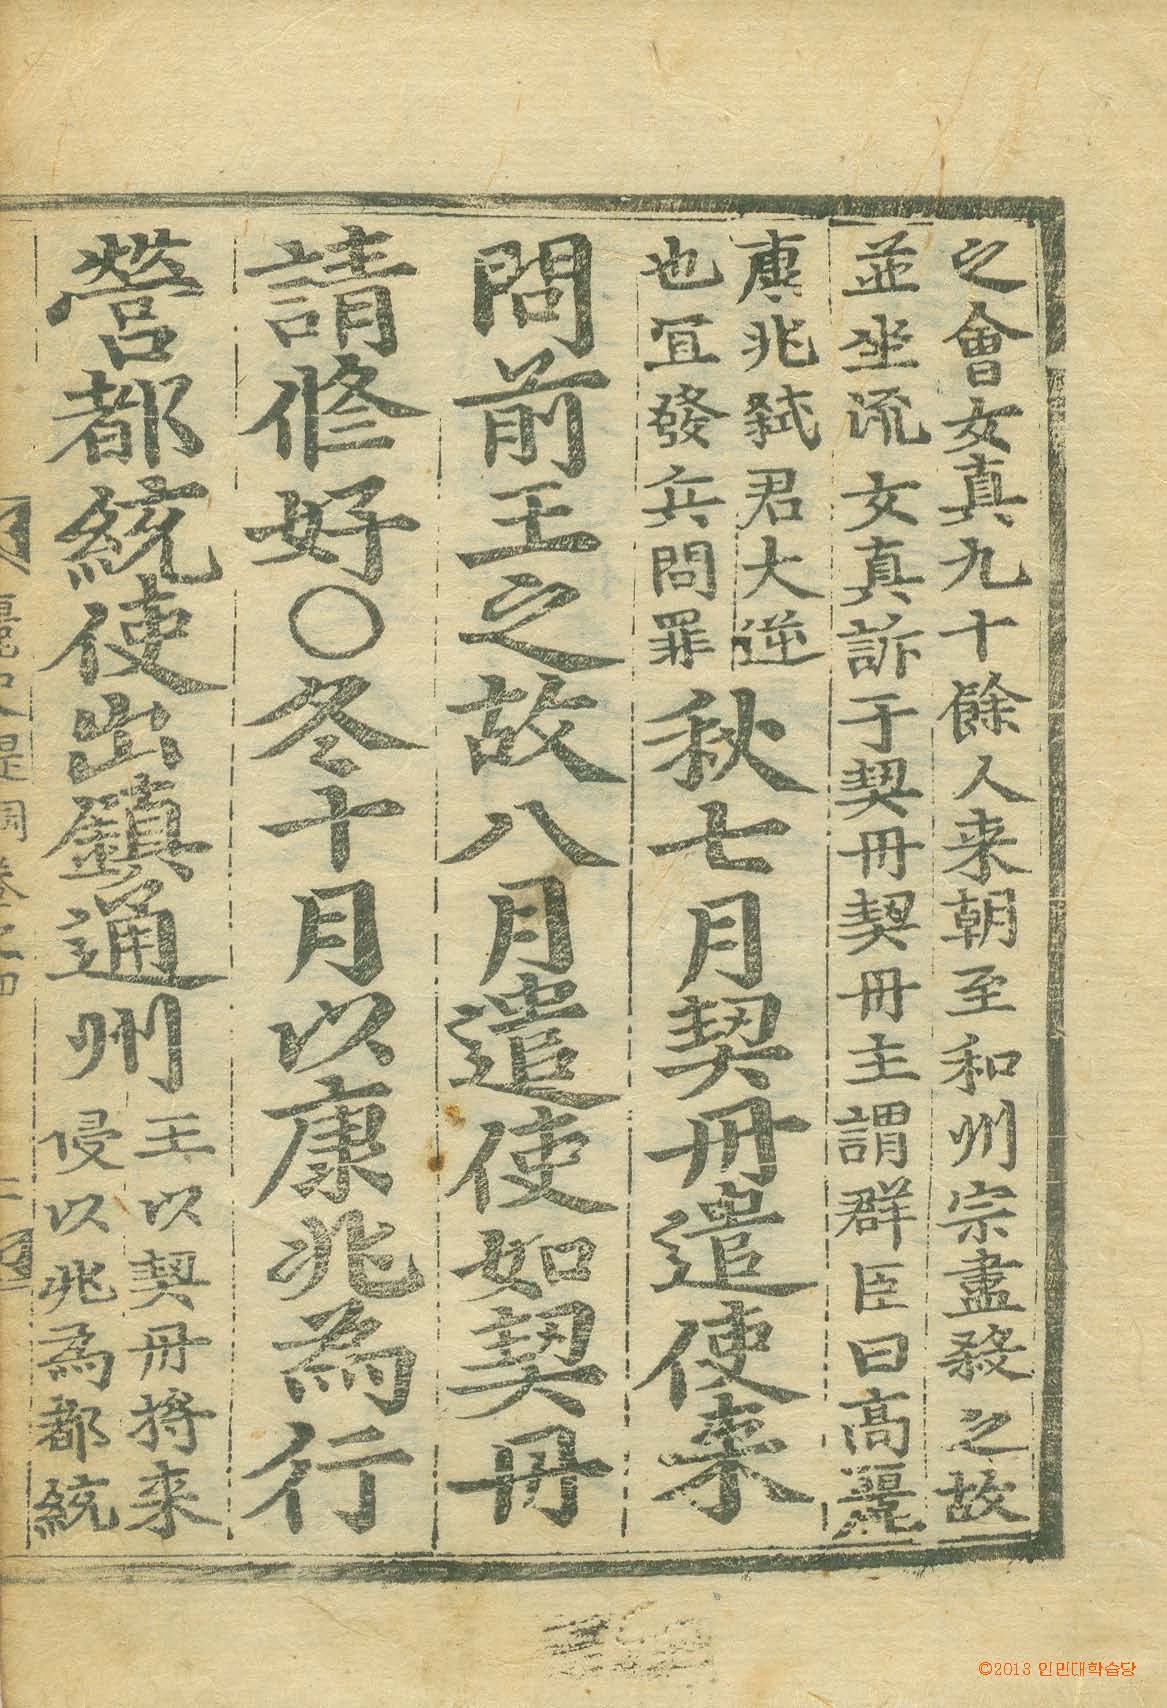 之會女真九十餘人来朝至和州宗盡殺之故
並坐流女真訴于契丹契丹主謂群臣曰高麗
康兆弑君大逆
也宜發兵問罪
秋七月契丹遣使来
問前王之故八月遣使如契丹
請修好〇冬十月以康兆為行
營都統使出鎮通州
王以契丹將来
侵以兆為都統
©2013 인민대학습당